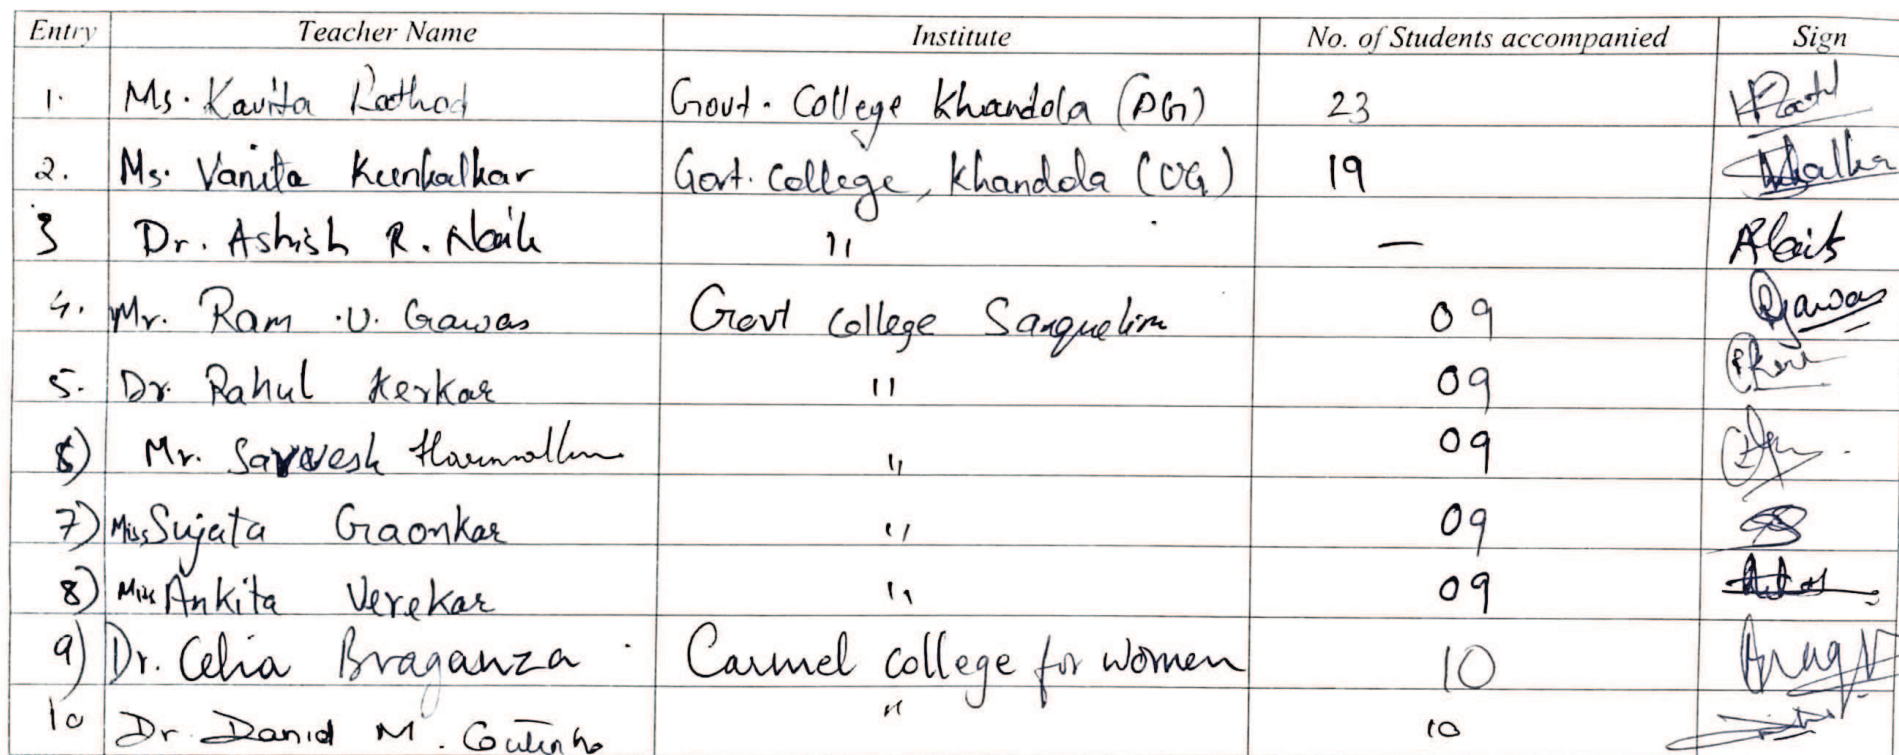 Entry Teacher Name Institute No. of Students accompanied Sign
1. Ms. Kavita Rathod Govt. College Khandola (PG) 23
2. Ms. Vanita Kunkalkar Govt. College, Khandola (UG) 19
3 Dr. Ashish R. Naik " — ANaik
4. Mr. Ram .V. Gawas Govt College Sanquelim 09 RGawas
5. Dr. Rahul Kerkar " 09
6) Mr. Sarvesh " 09
7) Miss Sujata Gaonkar " 09
8) Miss Ankita Verekar " 09
9) Dr. Celia Braganza Carmel college for women 10
10 Dr. Danid M. Coutinho " 10